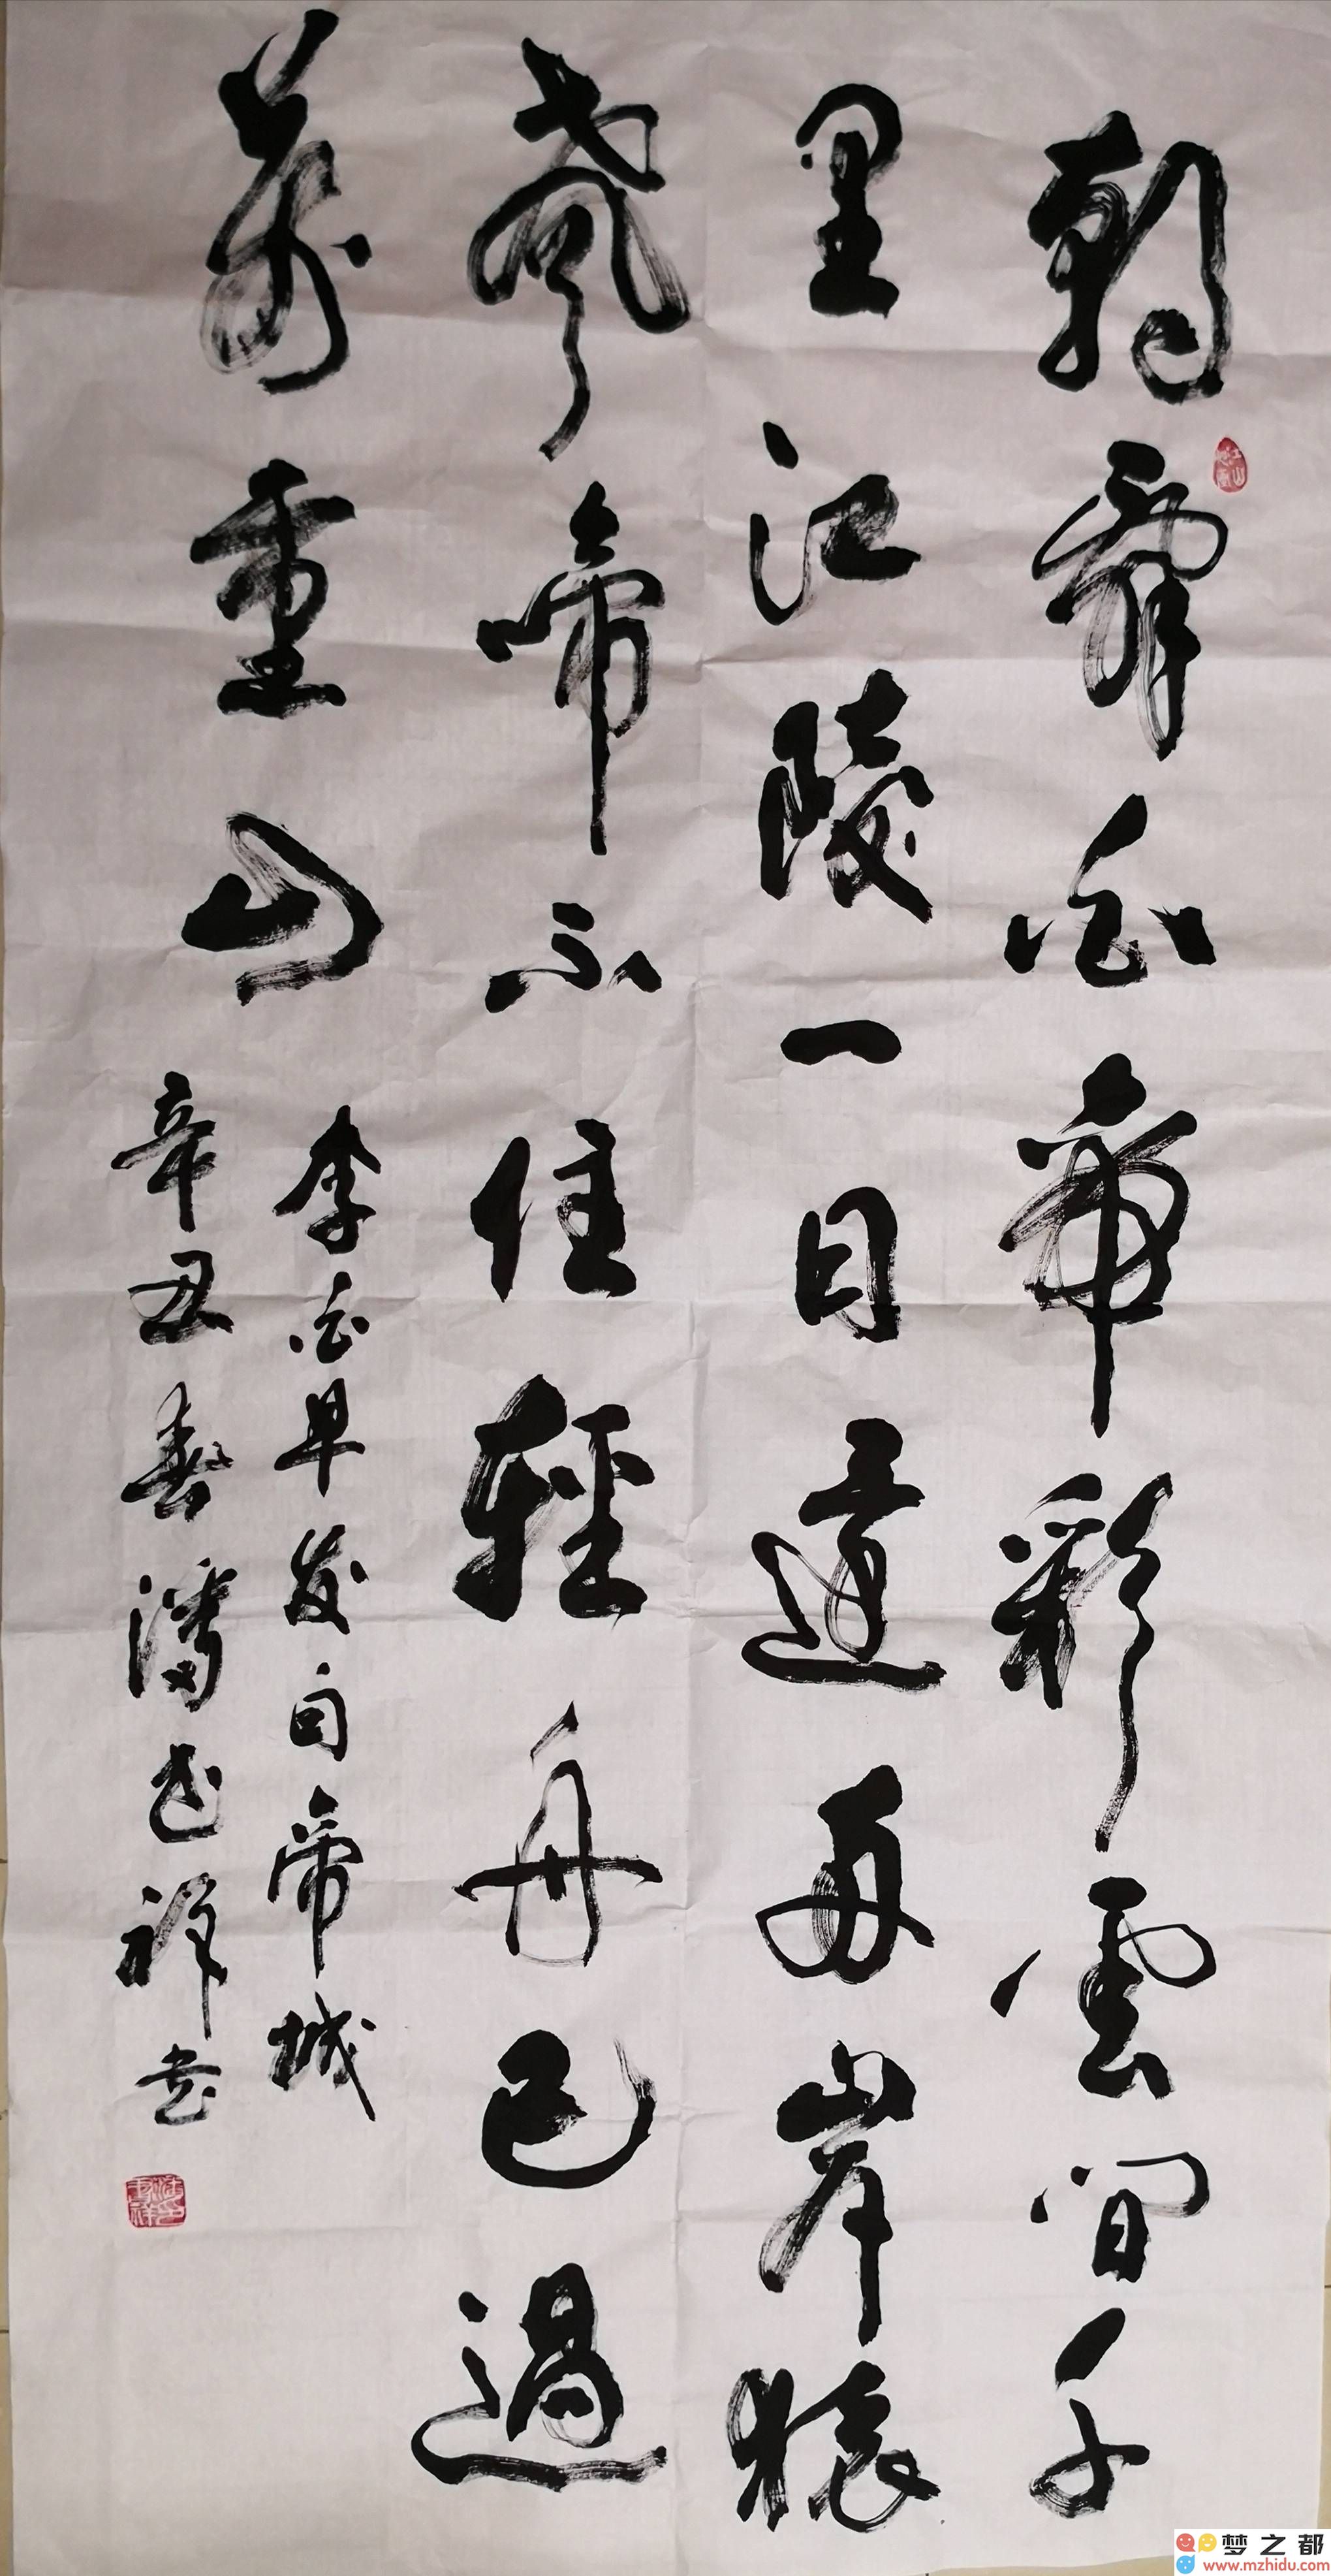 朝辭白帝彩雲間千
里江陵一日還兩岸猿
聲啼不住輕舟已過
萬重山
李白早发白帝城
辛丑春潘祥书
梦之都
www.mzhidu.com